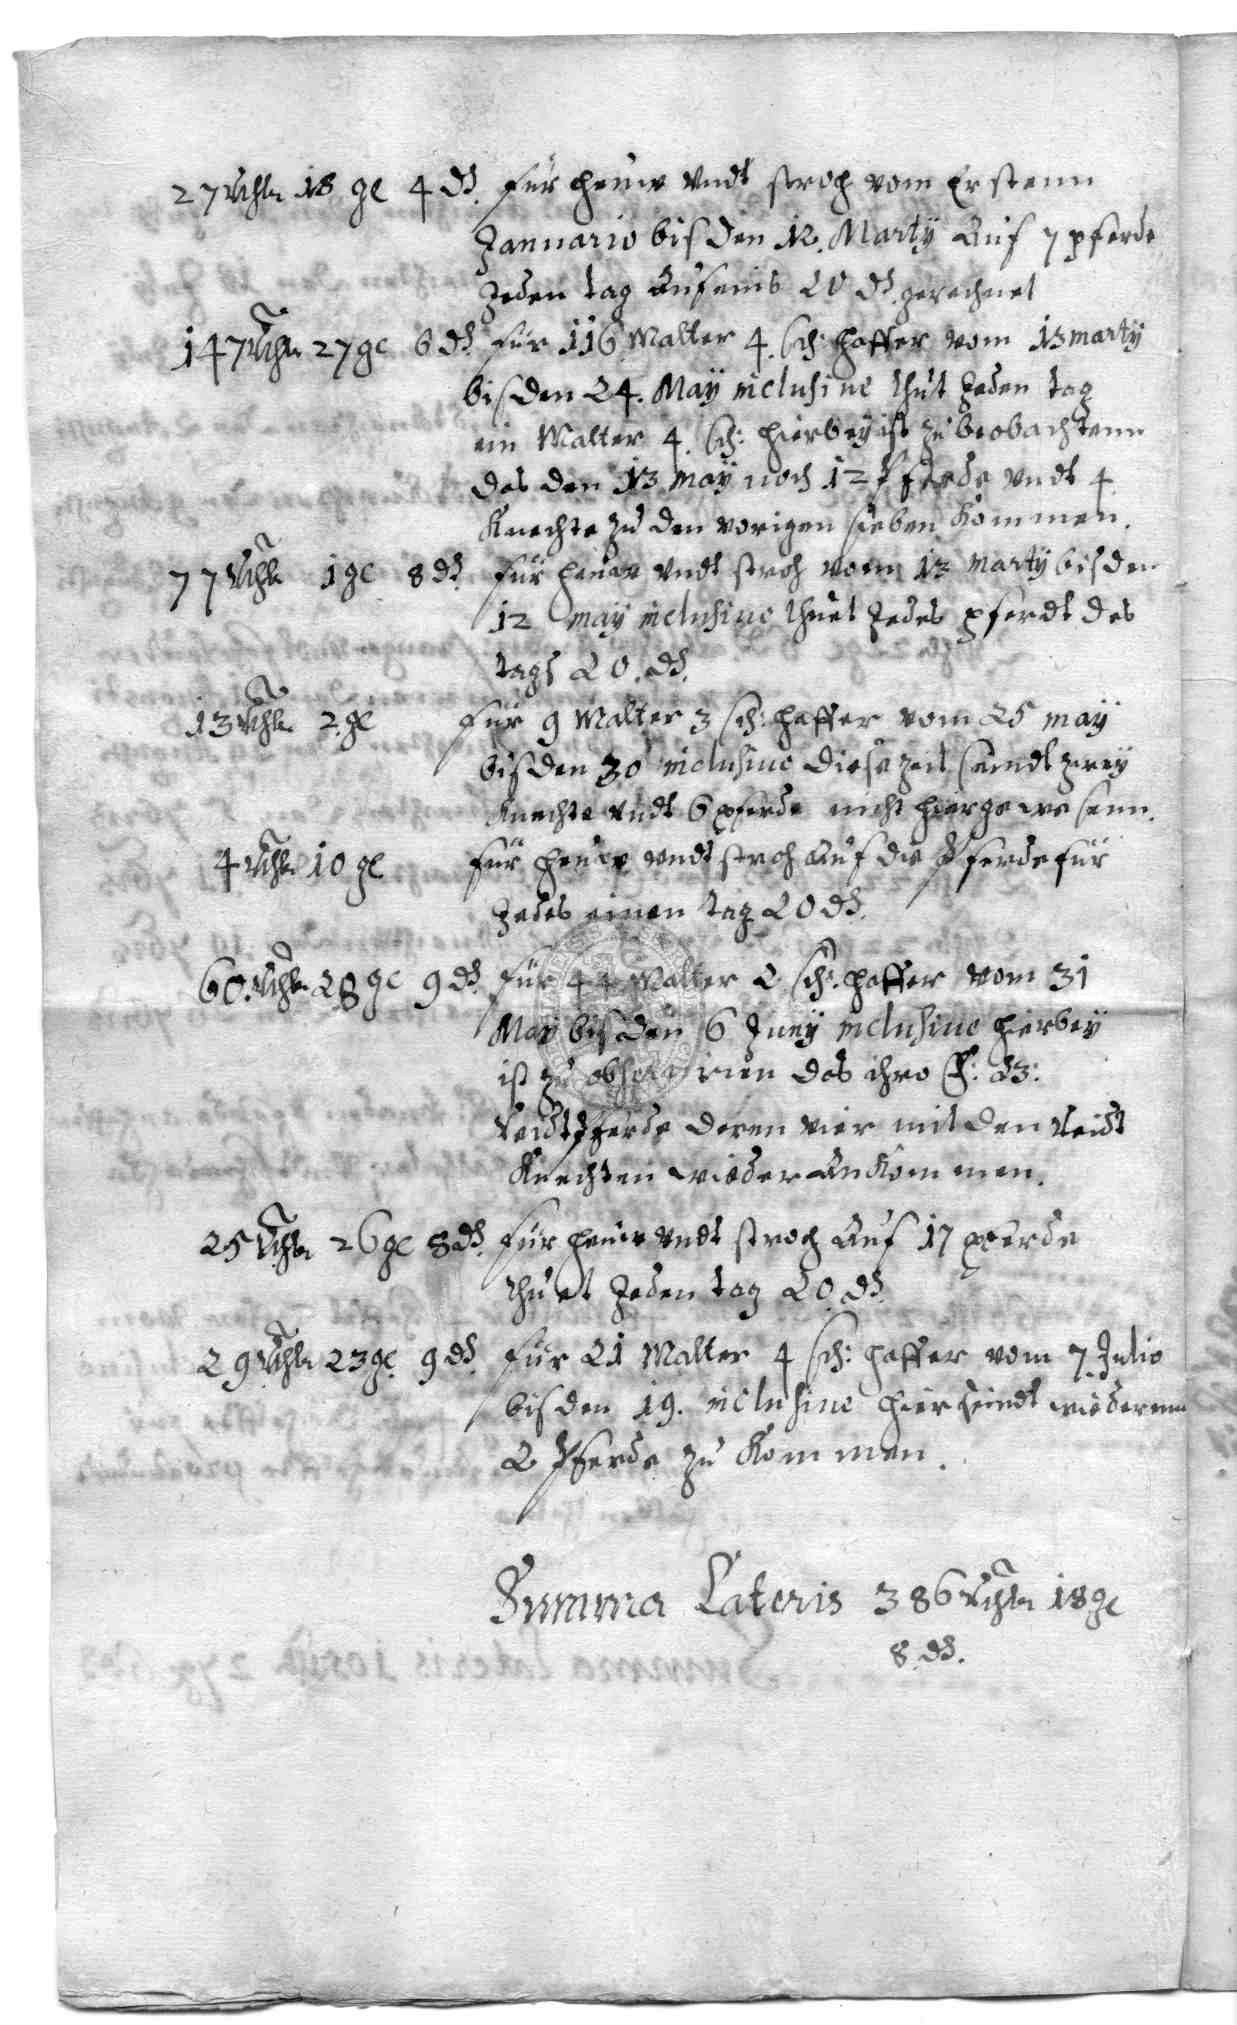 27 Rthlr 18 gl 4 ₰. für heuw Vndt stroh vom Erstenn
Januario bis den 12. Marty Auf 7 pferde
Jeden tag Aufeins 20 ₰ gerechnet
147 Rthlr 27 gl 6 ₰ für 116 Malter 4. sch: haffer vom 13 marty
bis den 24. Maÿ inclusiue thut Jeden tag
ein Malter 4. sch: hierbeÿ ist zu beobachtenn
das den 13 maÿ noch 12 Pferde vndt 4
Knechte zu den vorigen sieben Kommen.
77 Rthlr 1 gl 8 ₰ für heuw Vndt stroh vom 13 marty bis den
12 maÿ inclusiue thuet Jedes pferdt des
tags 20. ₰.
13 Rthlr 2. gl für 9 Malter 3 sch: haffer vom 25 maÿ
bis den 30 inclusiue diese zeit seindt zweÿ
Knechte vndt 6 pferde nicht hier gewesenn.
4 Rthlr 10 gl für heuw vndt stroh Auf die Pferde für
Jedes einen tag 20 ₰.
60. Rthlr 28 gl 9 ₰ für 44 Malter 2 sch: haffer vom 31
Maÿ bis den 6 Juny inclusiue hierbeÿ
ist zu das ihro
Reidtpferde deren vier mit den Reidt
Knechten wieder Ankommen.
25 Rthlr 26 gl 8 ₰. für heuw vndt stroh Auf 17 pferde
thuet Jeden tag 20 ₰
29 Rthlr 23 gl. 9 ₰. für 21 Malter 4 sch: haffer vom 7. Julio
bis den 19. inclusiue hier seindt wiederum
2 Pferde zu Kommen.
Summa Lateris 386 Rthlr 18 gl
8. ₰.